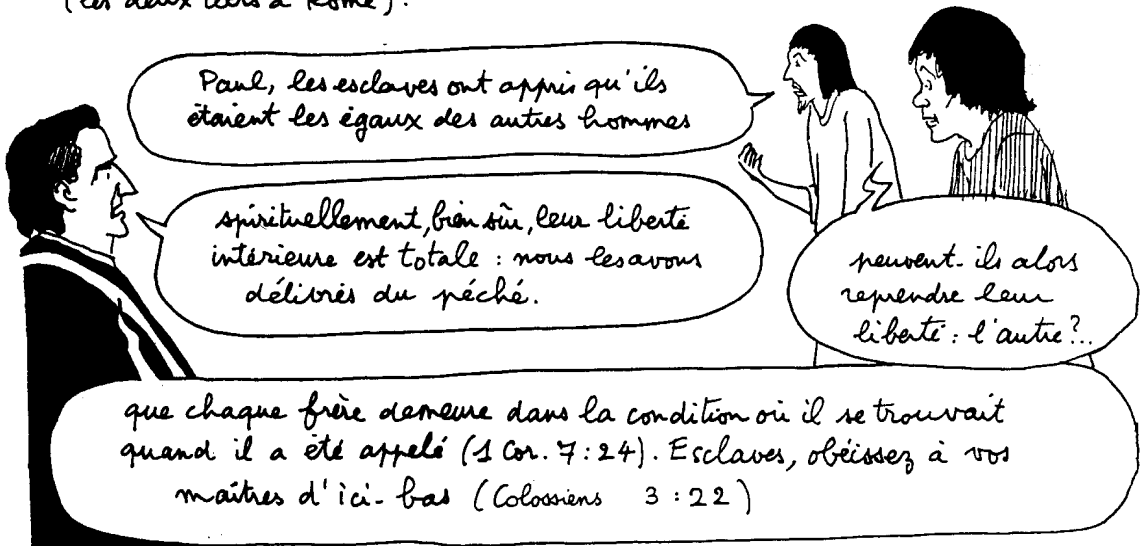 (les deux tiers à Rome).
Paul, les esclaves ont appris qu'ils
étaient les égaux des autres hommes
spirituellement, bien sûr, leur liberté
intérieure est totale : nous les avons
délivrés du péché.
peuvent-ils alors
reprendre leur
liberté : l'autre ?..
que chaque frère demeure dans la condition où il se trouvait
quand il a été appelé (1 Cor. 7:24). Esclaves, obéissez à vos
maîtres d'ici-bas (Colossiens 3:22)